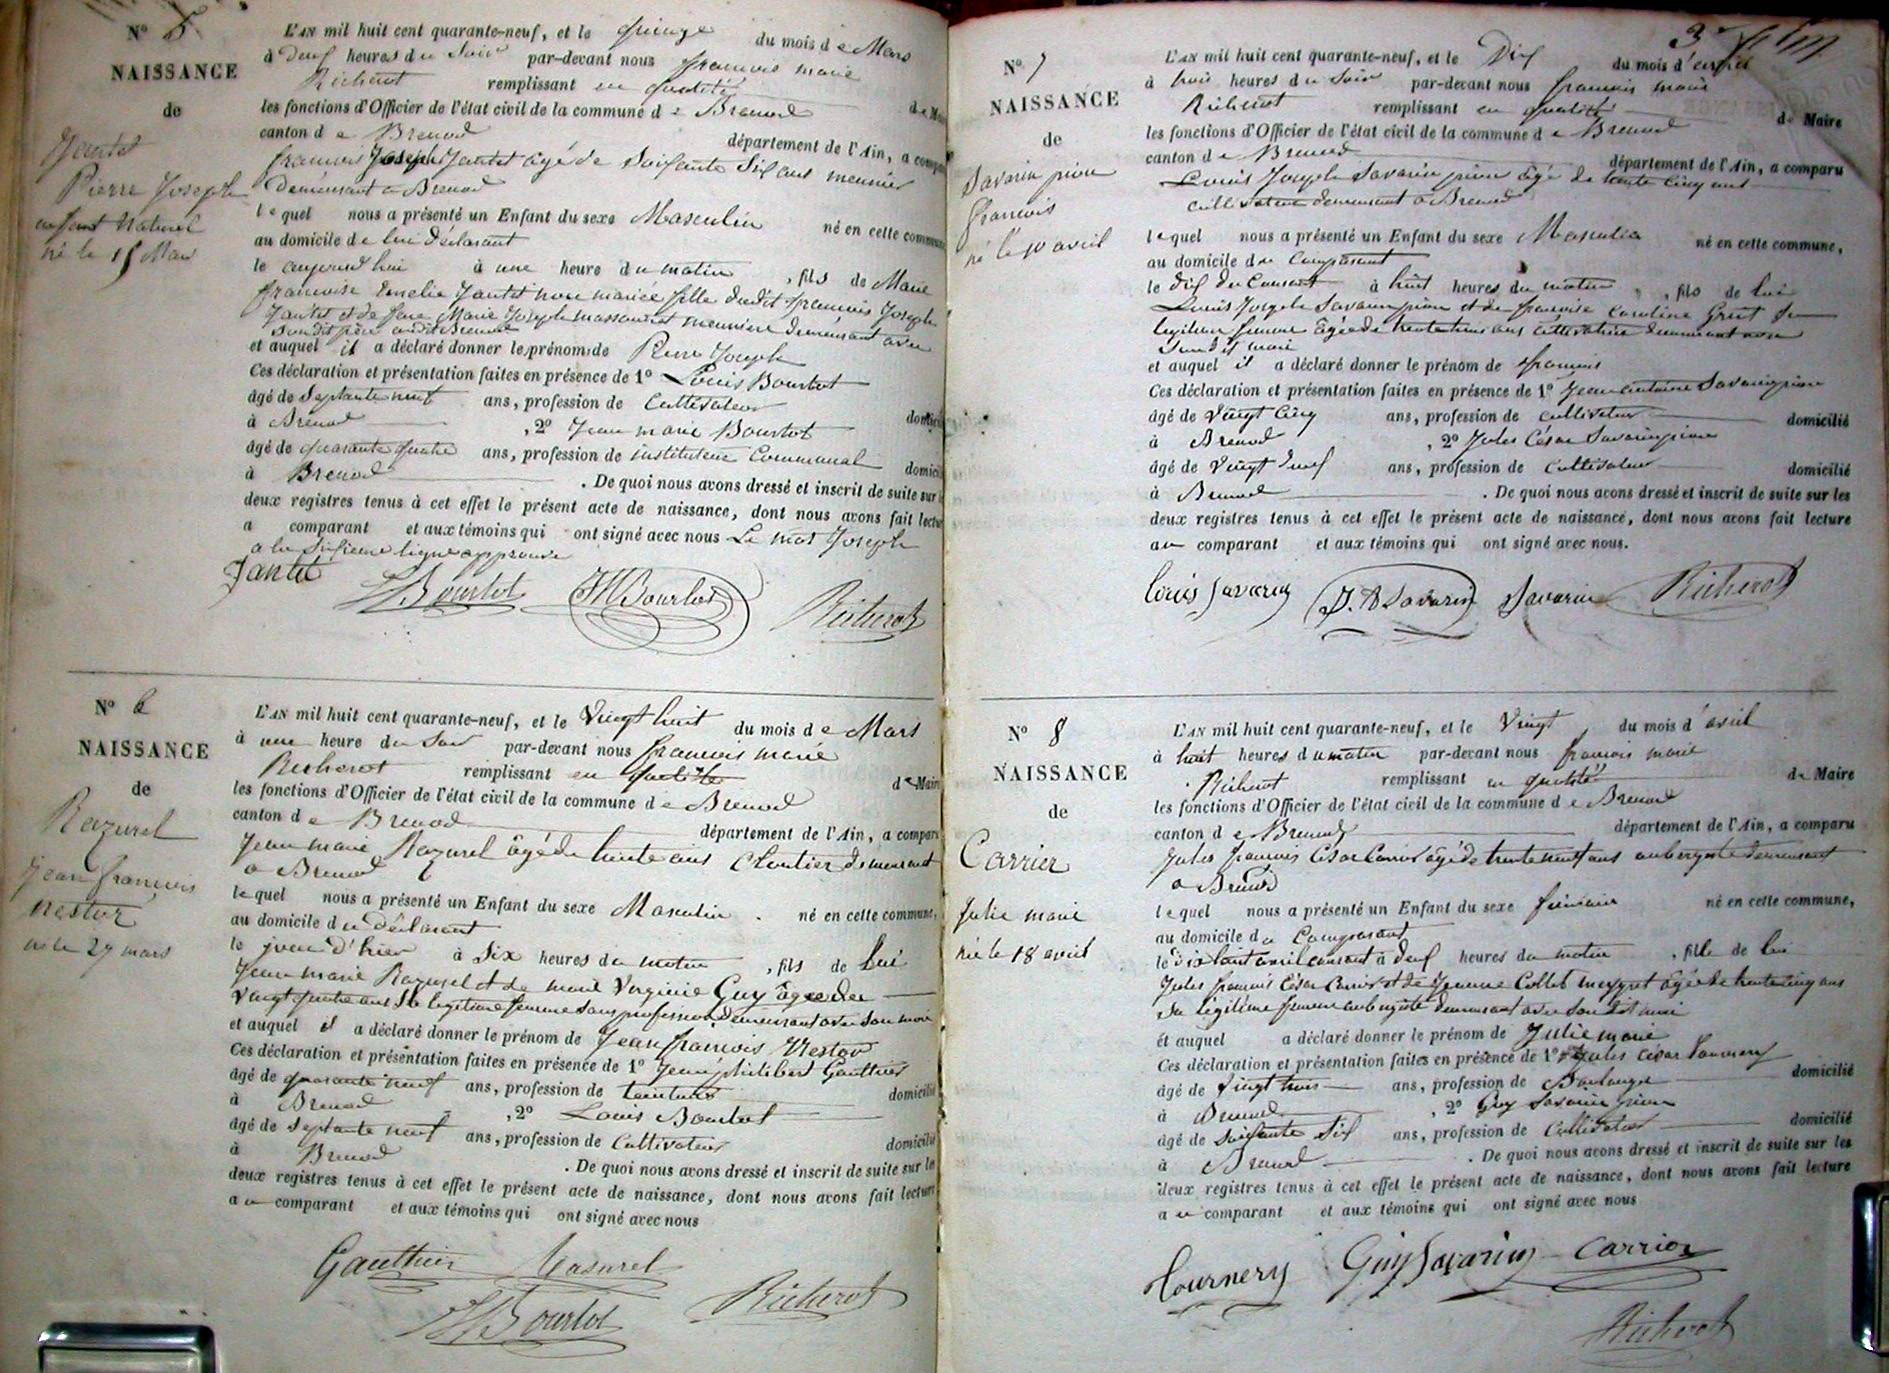 N° 5
NAISSANCE
de
Jantet
Pierre Joseph
enfant Naturel
né le 15 Mars
L'AN mil huit cent quarante-neuf, et le quinze du mois de Mars
à deux heures du Soir par-devant nous francois marie
Richerot remplissant en qualité de Maire
les fonctions d'Officier de l'état civil de la commune de Brenod
canton de Brenod département de l'Ain, a comparu
francois Joseph Jantet âgé de Soixante Six ans meunier
demeurant a Brenod
lequel nous a présenté un Enfant du sexe Masculin né en cette commune
au domicile de lui déclarant
le aujourd'hui à une heure du matin, fils de Marie
francoise Emelie Jantet non mariée fille dudit francois Joseph
Jantet et de feue Marie Joseph massonnet meuniere demeurant avec
Sondit père audit Brenod
et auquel il a déclaré donner le prénom de Pierre Joseph
Ces déclaration et présentation faites en présence de 1° Louis Bourlot
âgé de Septante neuf ans, profession de Cultivateur domicilié
à Brenod, 2° Jean marie Bourlot
âgé de quarante quatre ans, profession de instituteur Communal domicilié
à Brenod. De quoi nous avons dressé et inscrit de suite sur les
deux registres tenus à cet effet le présent acte de naissance, dont nous avons fait lecture
a comparant et aux témoins qui ont signé avec nous Le mot Joseph
a la Sixieme ligne approuvé
Jantet
Bourlot JMBourlot Richerot
N° 6
NAISSANCE
de
Razurel
Jean francois
nestor
né le 27 mars
L'AN mil huit cent quarante-neuf, et le Vingt huit du mois de Mars
à une heure du Soir par-devant nous francois marie
Richerot remplissant en qualité de Maire
les fonctions d'Officier de l'état civil de la commune de Brenod
canton de Brenod département de l'Ain, a comparu
Jean marie Razurel âgé de trente ans Cloutier demeurant
a Brenod
lequel nous a présenté un Enfant du sexe Masculin. né en cette commune,
au domicile du déclarant
le jour d'hier à Six heures du matin, fils de Lui
Jean marie Razurel et de marie Virginie Guy âgée de
Vingt quatre ans Sa legitime femme sans profession Demeurant avec Son mari
et auquel il a déclaré donner le prénom de Jean francois Nestor
Ces déclaration et présentation faites en présence de 1° Jean philibert Gauthier
âgé de quarante neuf ans, profession de teinturier domicilié
à Brenod, 2° Louis Bourlot
âgé de Septante neuf ans, profession de Cultivateur domicilié
à Brenod. De quoi nous avons dressé et inscrit de suite sur les
deux registres tenus à cet effet le présent acte de naissance, dont nous avons fait lecture
au comparant et aux témoins qui ont signé avec nous
Gauthier Rasurel
Bourlot Richerot
3
N° 7
NAISSANCE
de
Savarin pion
francois
né le 10 avril
L'AN mil huit cent quarante-neuf, et le Dix du mois d'avril
à trois heures du Soir par-devant nous francois marie
Richerot remplissant en qualité de Maire
les fonctions d'Officier de l'état civil de la commune de Brenod
canton de Brenod département de l'Ain, a comparu
Louis Joseph Savarin pion âgé de trente Cinq ans
cultivateur demeurant a Brenod
lequel nous a présenté un Enfant du sexe Masculin né en cette commune,
au domicile du Comparant
le dix du Courant à huit heures du matin, fils de lui
Louis Joseph Savarin pion et de francoise Caroline Grut Sa
legitime femme âgée de trente trois ans cultivatrice demeurant avec
Son dit mari
et auquel il a déclaré donner le prénom de francois
Ces déclaration et présentation faites en présence de 1° Jean antoine Savarin pion
âgé de Vingt Cinq ans, profession de cultivateur domicilié
à Brenod, 2° Jules César Savarin pion
âgé de Vingt deux ans, profession de Cultivateur domicilié
à Brenod. De quoi nous avons dressé et inscrit de suite sur les
deux registres tenus à cet effet le présent acte de naissance, dont nous avons fait lecture
au comparant et aux témoins qui ont signé avec nous.
Louis Savarin J. A Savarin Savarin Richerot
N° 8
NAISSANCE
de
Carrier
Julie marie
née le 18 avril
L'AN mil huit cent quarante-neuf, et le Vingt du mois d'avril
à huit heures du matin par-devant nous francois marie
Richerot remplissant en qualité de Maire
les fonctions d'Officier de l'état civil de la commune de Brenod
canton de Brenod département de l'Ain, a comparu
Jules francois César Carrier âgé de trente neuf ans aubergiste demeurant
a Brenod
lequel nous a présenté un Enfant du sexe féminin né en cette commune,
au domicile du Comparant
le dix huit avril courant à deux heures du matin, fille de lui
Jules francois César Carrier et de Jeanne Collet meygret âgée de trente cinq ans
Sa légitime femme aubergiste demeurant avec Son dit mari
et auquel a déclaré donner le prénom de Julie marie
Ces déclaration et présentation faites en présence de 1° Jules César Tournery
âgé de Vingt trois ans, profession de Boulanger domicilié
à Brenod, 2° Guy Savarin pion
âgé de Soixante Six ans, profession de Cultivateur domicilié
à Brenod. De quoi nous avons dressé et inscrit de suite sur les
deux registres tenus à cet effet le présent acte de naissance, dont nous avons fait lecture
au comparant et aux témoins qui ont signé avec nous
Tournery Guy Savarin Carrier
Richerot